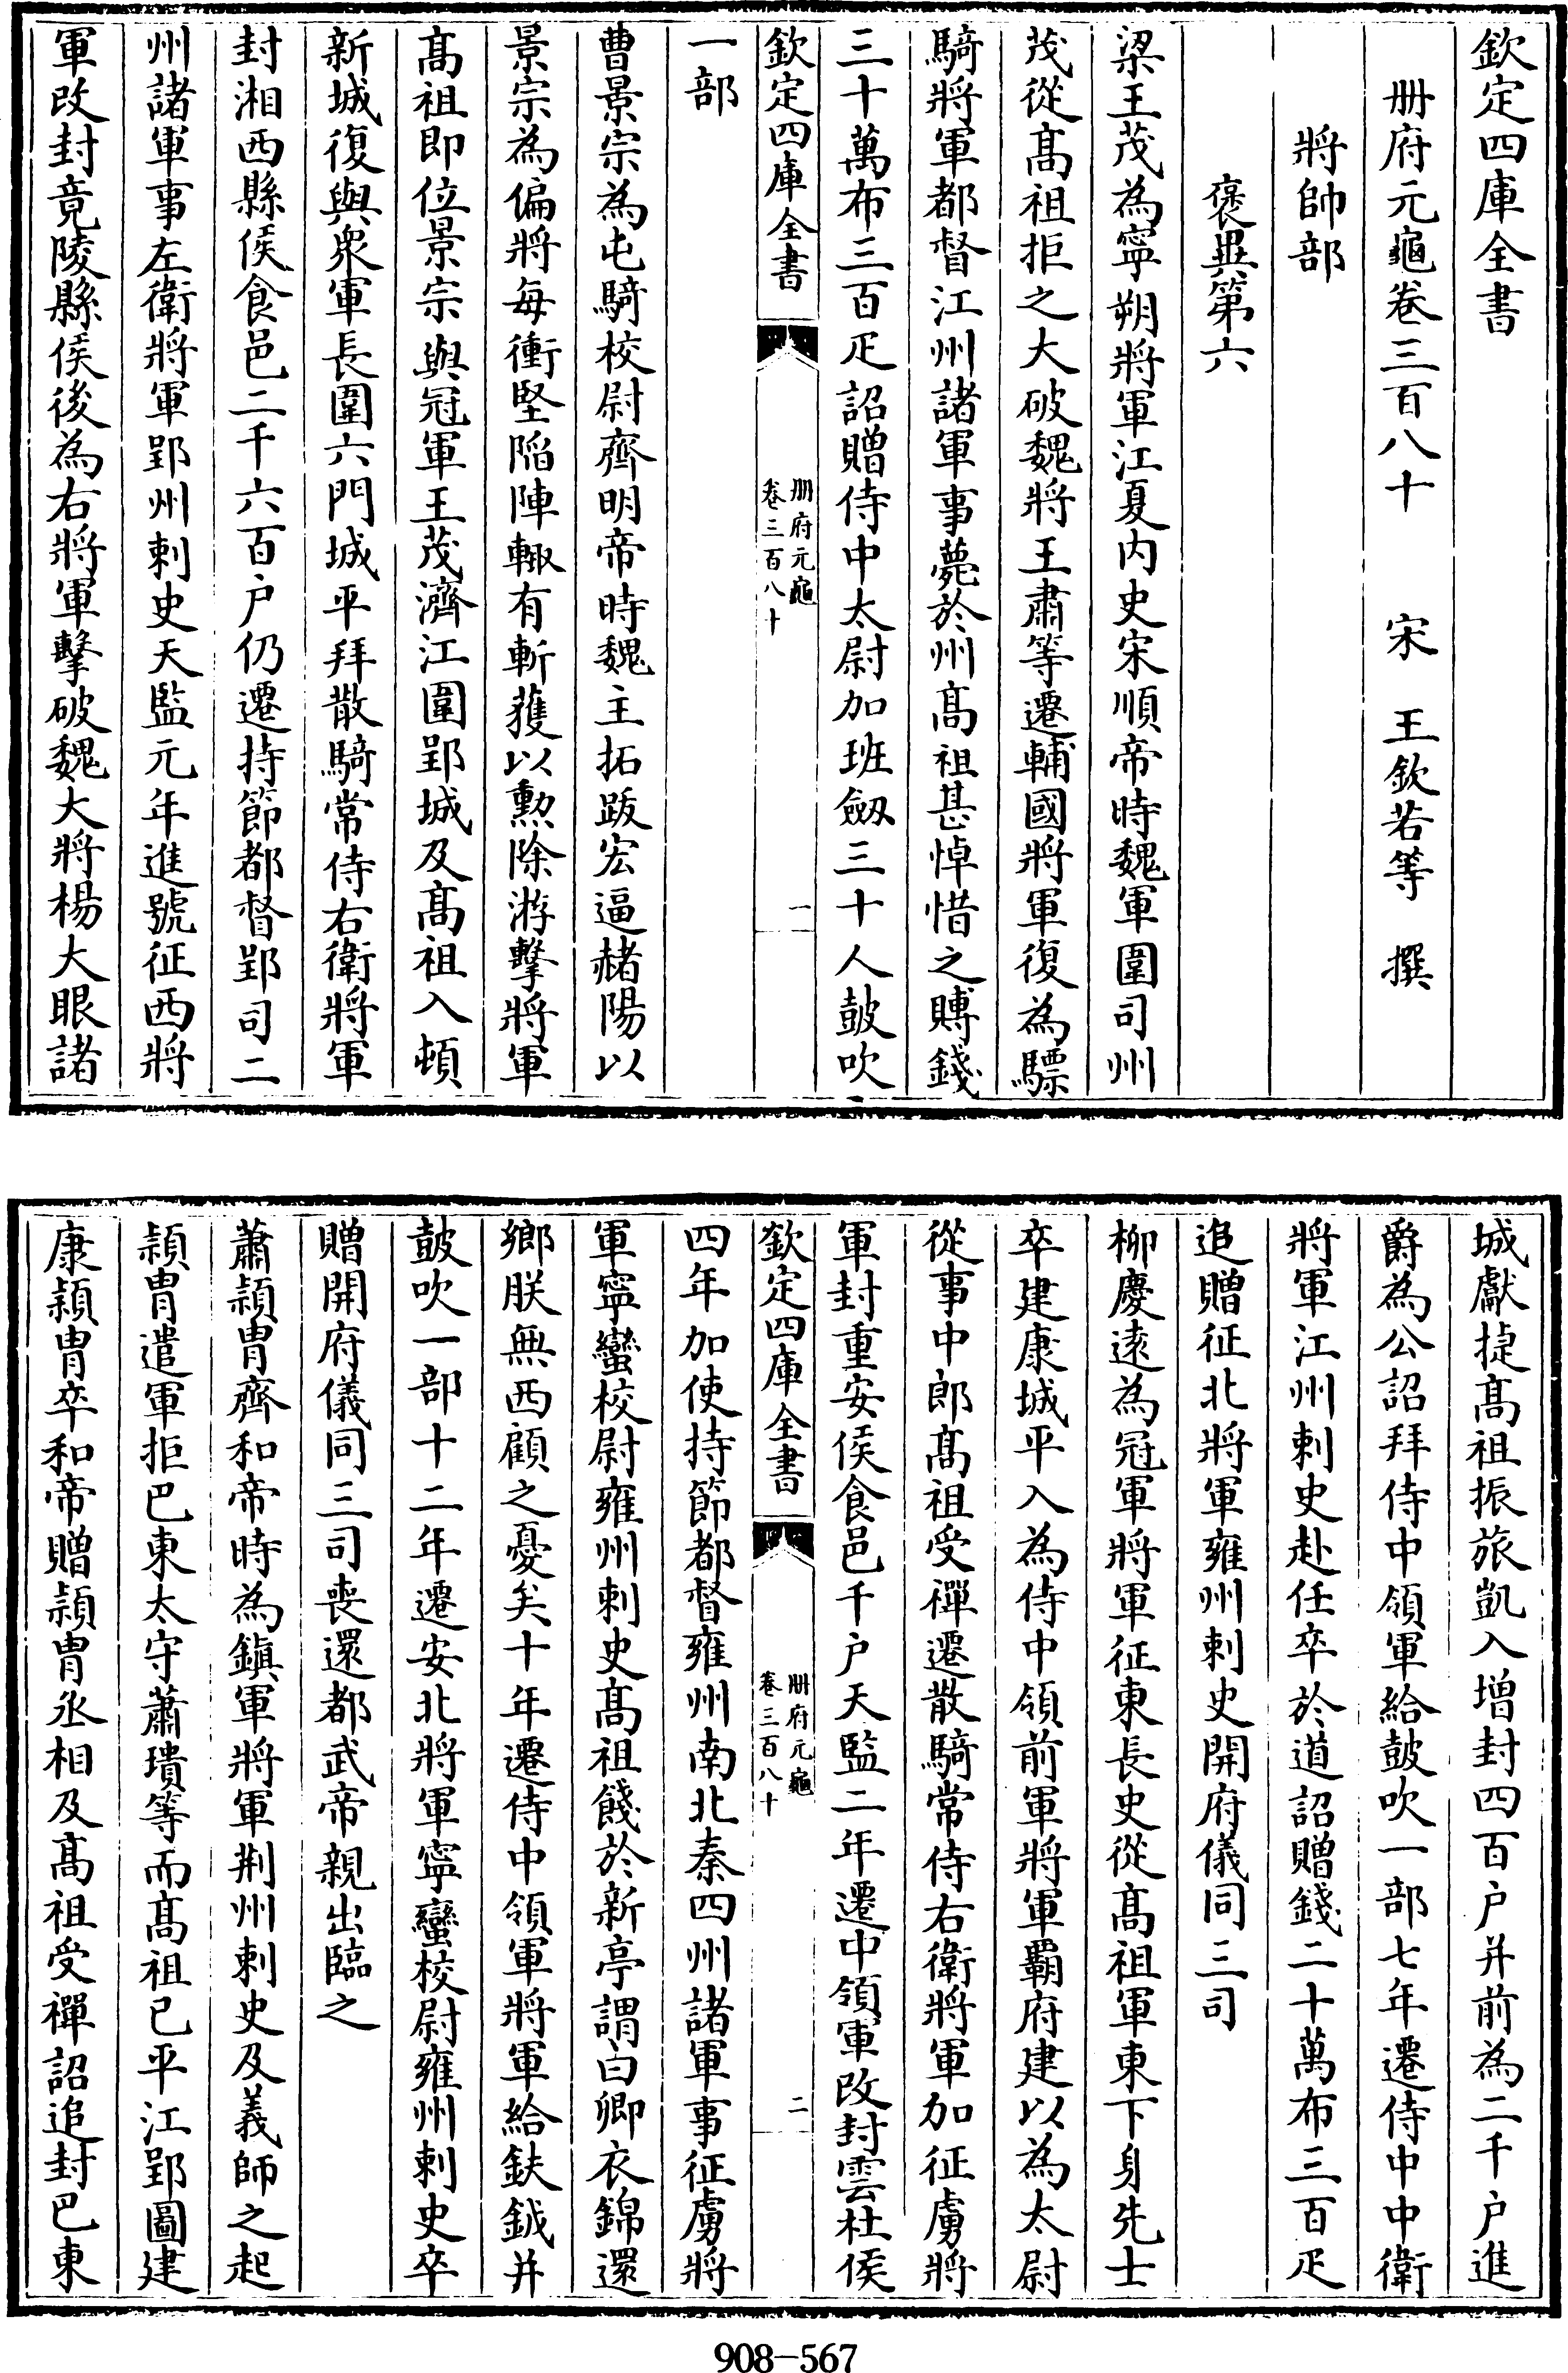 欽定四庫全書
册府元龜卷三百八十　宋　王欽若等　撰
將帥部
褒異第六
梁王茂為寧朔將軍江夏内史宋順帝時魏軍圍司州
茂從髙祖拒之大破魏將王肅等遷輔國將軍復為驃
騎將軍都督江州諸軍事薨於州髙祖甚悼惜之賻錢
三十萬布三百疋詔贈侍中太尉加班劒三十人鼓吹
欽定四庫全書
册府元龜
卷三百八十
一
一部
曹景宗為屯騎校尉齊明帝時魏主拓跋宏逼赭陽以
景宗為偏將每衝堅陷陣輙有斬獲以勲除游擊將軍
髙祖即位景宗與冠軍王茂濟江圍郢城及髙祖入頓
新城復與衆軍長圍六門城平拜散騎常侍右衛將軍
封湘西縣侯食邑二千六百户仍遷持節都督郢司二
州諸軍事左衛將軍郢州刺史天監元年進號征西將
軍改封竟陵縣侯後為右將軍擊破魏大將楊大眼諸
城獻捷髙祖振旅凱入增封四百户并前為二千户進
爵為公詔拜侍中領軍給鼓吹一部七年遷侍中中衛
將軍江州刺史赴任卒於道詔贈錢二十萬布三百疋
追贈征北將軍雍州刺史開府儀同三司
柳慶逺為冠軍將軍征東長史從髙祖軍東下身先士
卒建康城平入為侍中領前軍將軍覇府建以為太尉
從事中郎髙祖受禪遷散騎常侍右衛將軍加征虜將
軍封重安侯食邑千户天監二年遷中領軍改封雲杜侯
欽定四庫全書
册府元龜
卷三百八十
二
四年加使持節都督雍州南北秦四州諸軍事征虜將
軍寧蠻校尉雍州刺史髙祖餞於新亭謂曰卿衣錦還
鄉朕無西顧之憂矣十年遷侍中領軍將軍給鈇鉞并
鼓吹一部十二年遷安北將軍寧蠻校尉雍州刺史卒
贈開府儀同三司喪還都武帝親出臨之
蕭頴胄齊和帝時為鎮軍將軍荆州刺史及義師之起
頴胄遣軍拒巴東太守蕭璝等而髙祖已平江郢圖建
康頴胄卒和帝贈頴胄丞相及髙祖受禪詔追封巴東
908-567